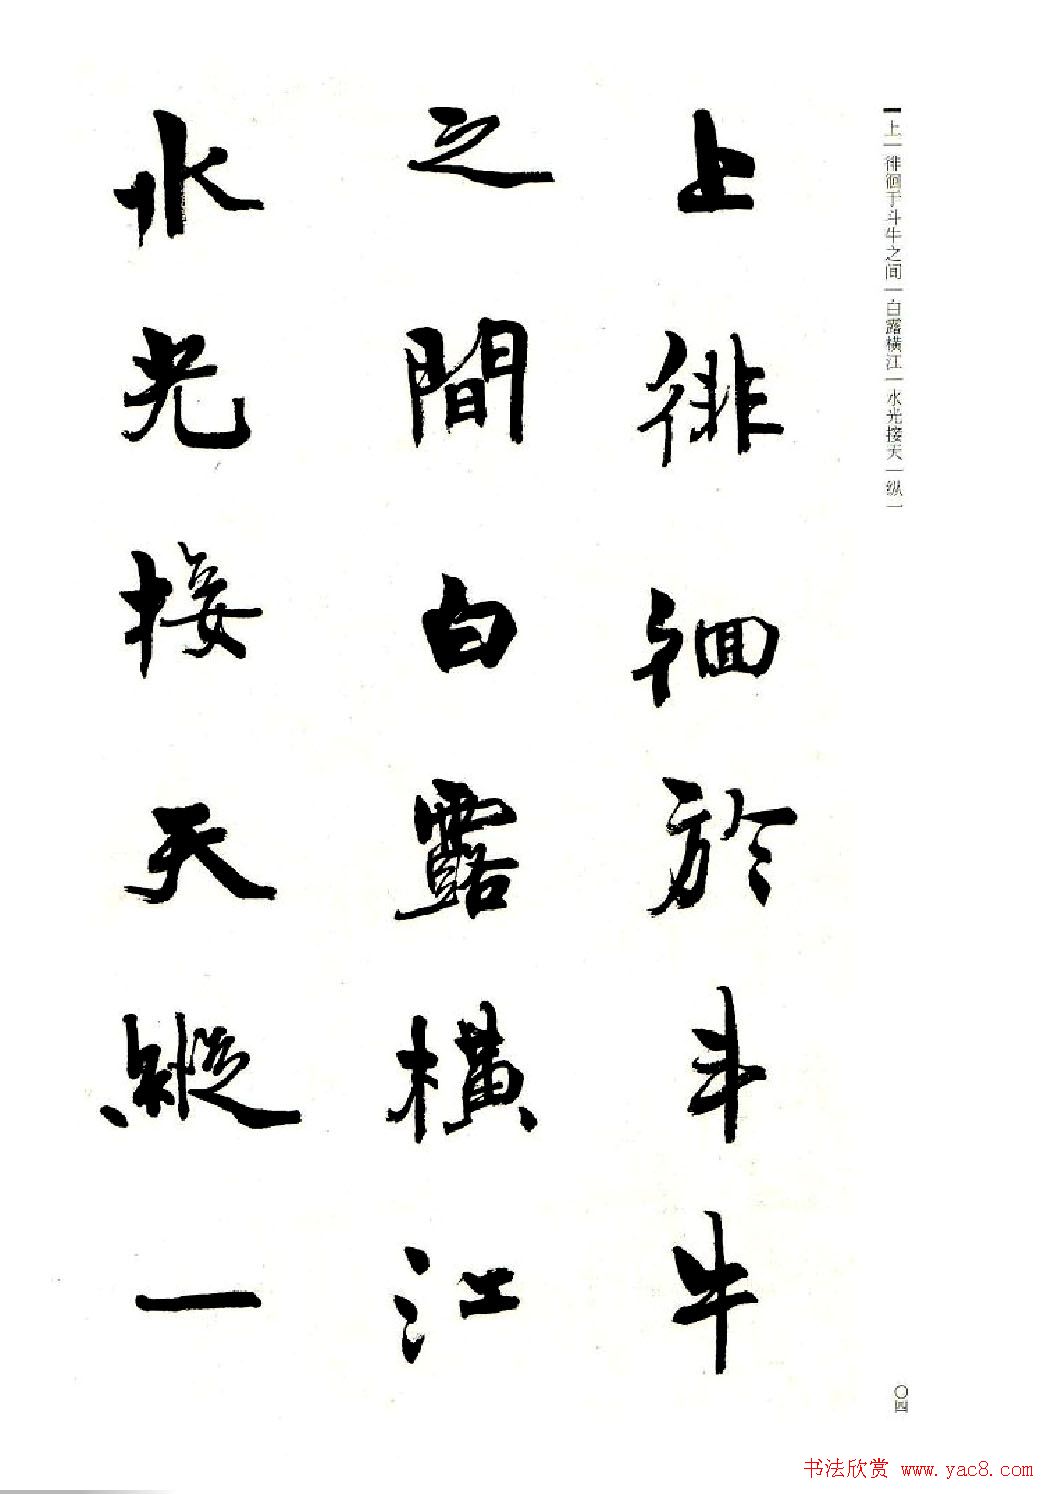 上一徘徊于斗牛之间一白露横江一水光接天一纵一
上徘徊於斗牛
之間白露橫江
水光接天縱一
〇四
书法欣赏 www.yac8.com